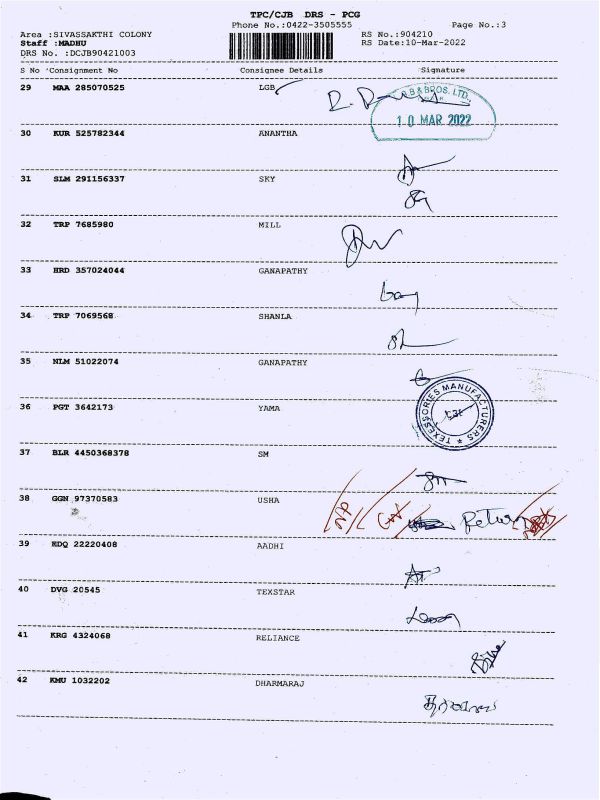 TPC/CJB DRS - PCG
Phone No.:0422-3505555 Page No.:3
Area :SIVASSAKTHI COLONY RS No.:904210
Staff :MADHU RS Date:10-Mar-2022
DRS No. :DCJB90421003
S No Consignment No Consignee Details Signature
29 MAA 285070525 LGB
10 MAR 2022
30 KUR 525782344 ANANTHA
31 SLM 291156337 SKY
32 TRP 7685980 MILL
33 HRD 357024044 GANAPATHY
34 TRP 7069568 SHANLA
35 NLM 51022074 GANAPATHY
36 PGT 3642173 YAMA
TEXESSORIES MANUFACTURERS
37 BLR 4450368378 SM
38 GGN 97370583 USHA Return
39 KDQ 22220408 AADHI
40 DVG 20545 TEXSTAR
41 KRG 4324068 RELIANCE
42 KMU 1032202 DHARMARAJ